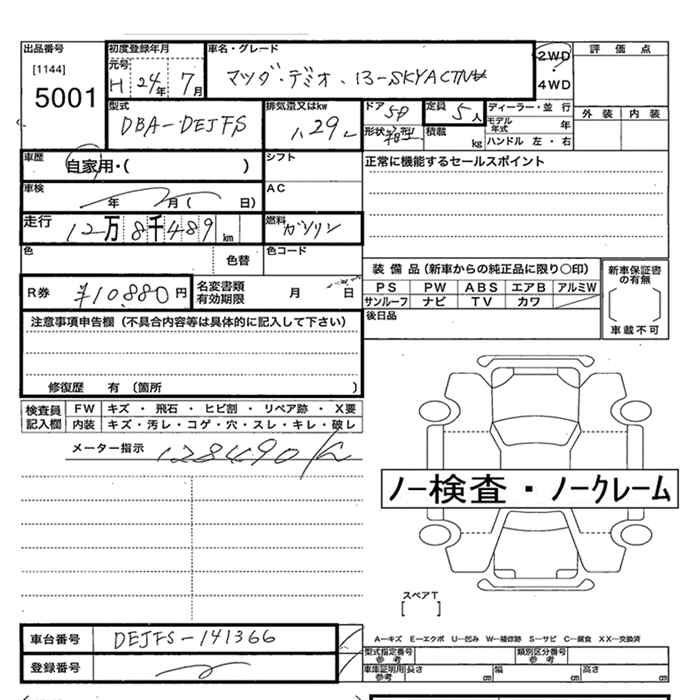 出品番号
[1144]
5001
初度登録年月
元号
H 24年 7月
車名・グレード
マツダ・デミオ、13-SKYACTIV
2WD
・
4WD
評価点
外装 内装
型式
DBA-DEJFS
排気量又はkw
1.29L
ドア 5D
形状
定員 5人
積載 kg
ディーラー・並行
モデル年式 年
ハンドル 左・右
車歴
自家用・( )
シフト
正常に機能するセールスポイント
車検
年 月( 日)
AC
走行
12万8千489km
燃料
ガソリン
色
色替
色コード
装備品(新車からの純正品に限り○印)
PS PW ABS エアB アルミW
サンルーフ ナビ TV カワ
新車保証書の有無
車載不可
R券
¥10,880円
名変書類有効期限
月 日
後日品
注意事項申告欄(不具合内容等は具体的に記入して下さい)
修復歴 有(箇所 )
検査員記入欄
FW キズ・飛石・ヒビ割・リペア跡・X要
内装 キズ・汚レ・コゲ・穴・スレ・キレ・破レ
メーター指示
128490k
ノー検査・ノークレーム
スペアT
[ ]
車台番号
DEJFS-141366
登録番号
A−キズ E−エクボ U−凹み W−補修跡 S−サビ C−腐食 XX−交換済
型式指定番号 参考
類別区分番号 参考
車庫証明用 参考
長さ cm 幅 cm 高さ cm